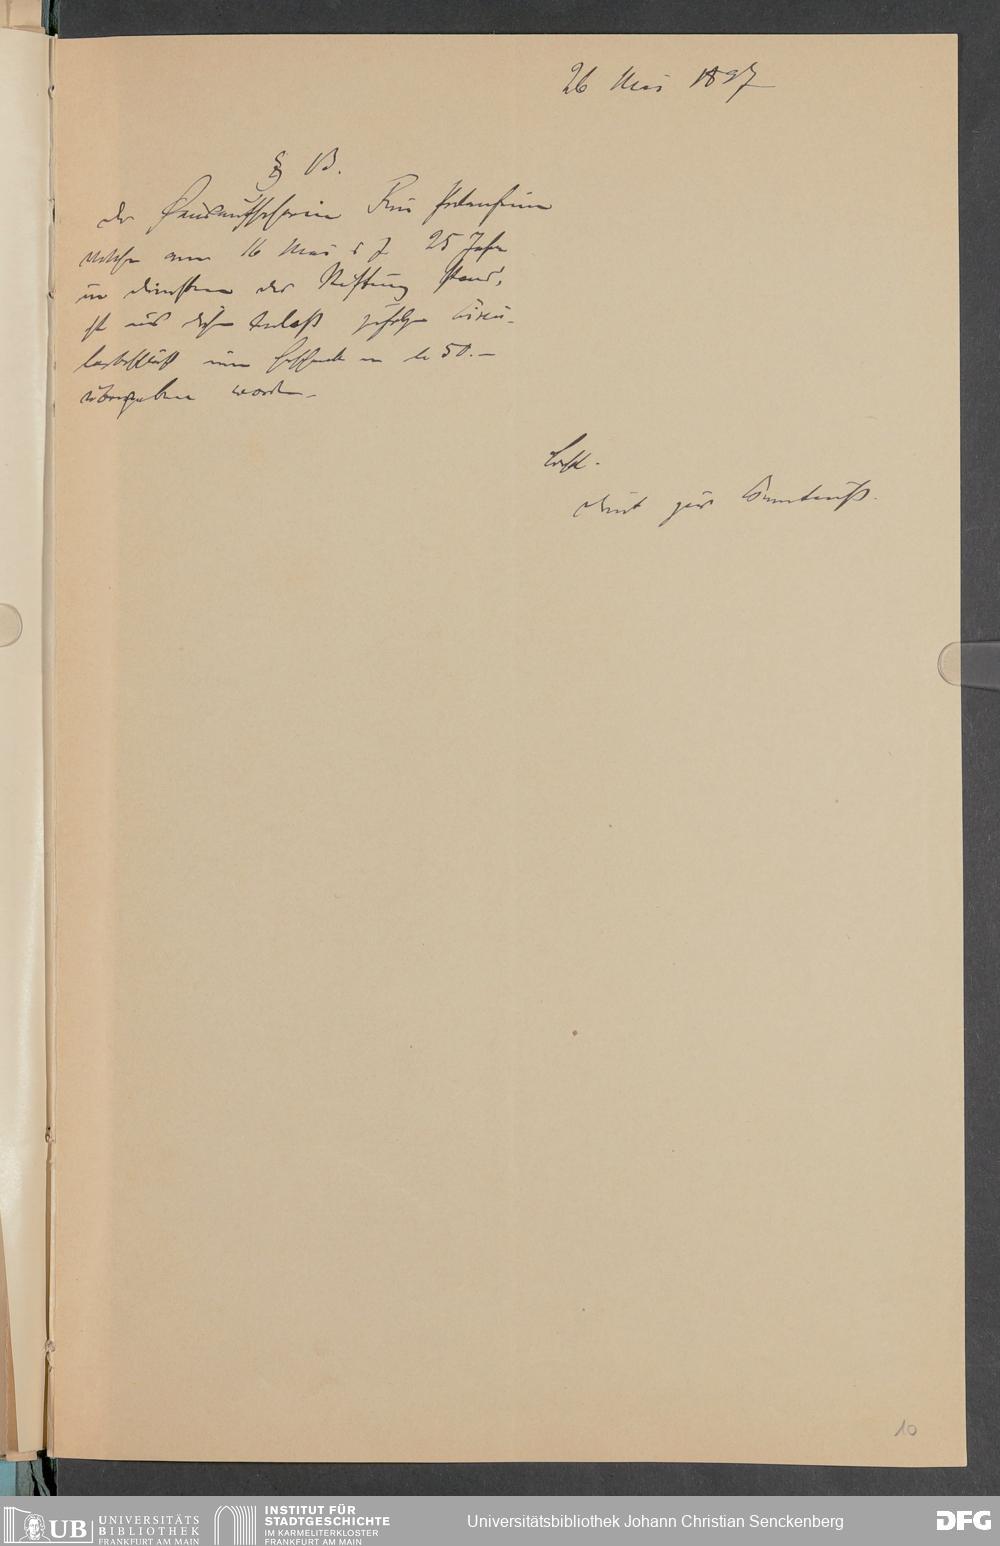 26 Mai 1897
§ 13.
Der Hausaufseherin Frau
welche am 16 Mai d J. 25 Jahre
in Diensten der Stiftung stand,
ist aus diesem Anlaß zufolge Circu-
larbeschluß ein Geschenk von M 50.–
übergeben worden.
Beschl.
dient zur Kenntniß.
10
UB UNIVERSITÄTS
BIBLIOTHEK
FRANKFURT AM MAIN
INSTITUT FÜR
STADTGESCHICHTE
IM KARMELITERKLOSTER
FRANKFURT AM MAIN
Universitätsbibliothek Johann Christian Senckenberg
DFG